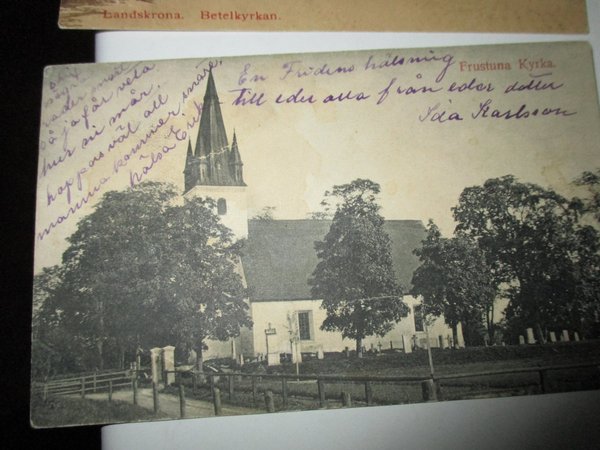 Landskrona. Betelkyrkan.
Frustuna Kyrka.
En Fridens hälsning
till eder alla från eder dotter
Ida Karlsson
snart
så jag får veta
hur ni mår,
hoppas väl att
mamma kommer
hälsa Erik